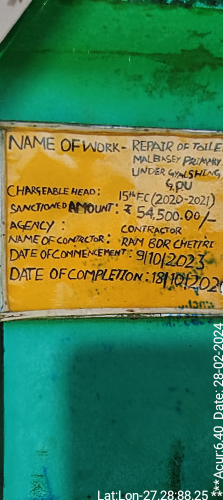 NAME OF WORK - REPAIR OF TOILE
MALBASEY PRIMARY
UNDER GYALSHING,
GPU
CHARGEABLE HEAD: 15th FC (2020-2021)
SANCTIONED AMOUNT: ₹ 54,500.00/-
AGENCY: CONTRACTOR
NAME OF CONTRACTOR: RAM BDR CHETTRI
DATE OF COMMENCEMENT: 9/10/2023
DATE OF COMPLETION: 18/10/202
Lat:Lon-27.28:88.25
Acur:6.40 Date: 28-02-2024